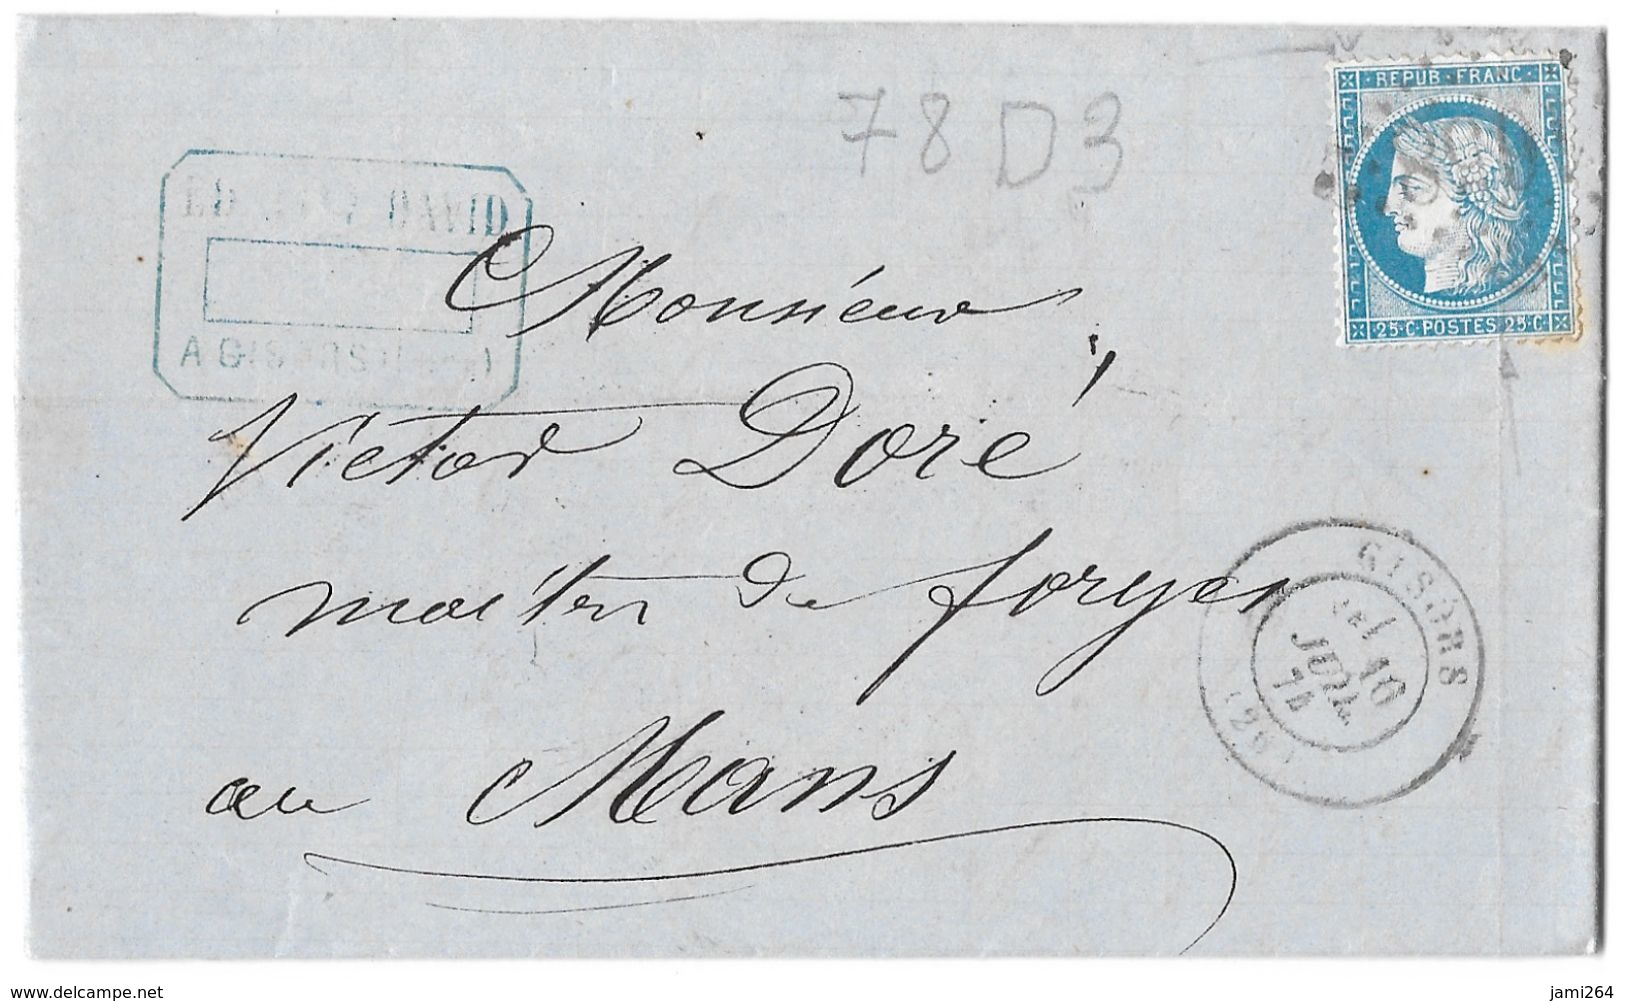 78D3
REPUB·FRANC·
25·C·POSTES 25·C·
DAVID
A GISORS
Monsieur
Victor Doré
maître de forges
au Mans
GISORS
16
JUIL
www.delcampe.net
jami264